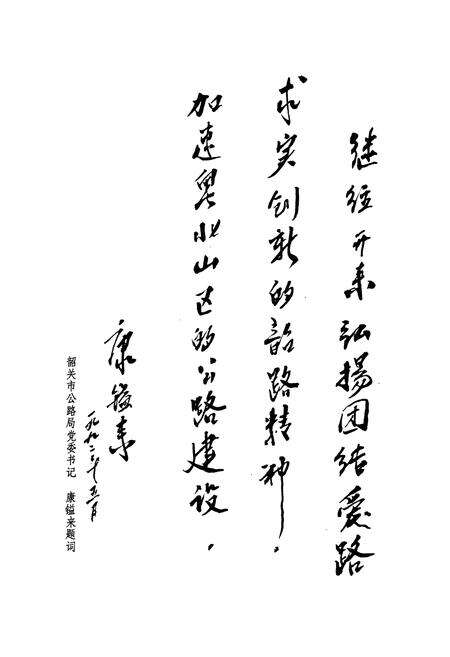 继往开来弘揚团结爱路
求实创新的韶路精神.
加速粤北山区的公路建设.
康镒来
一九九二年五月
韶关市公路局党委书记 康镒来题词